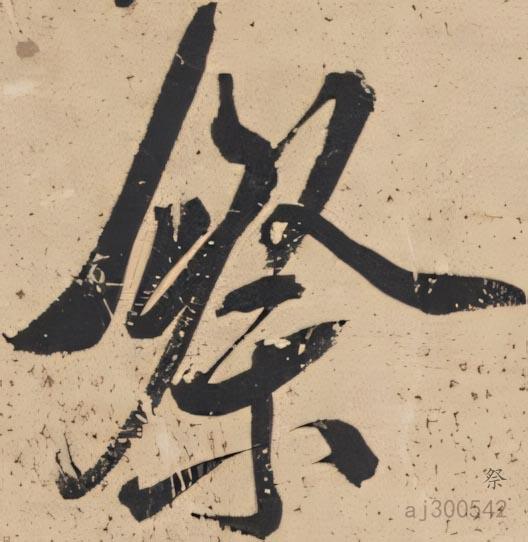 祭
祭
aj300542